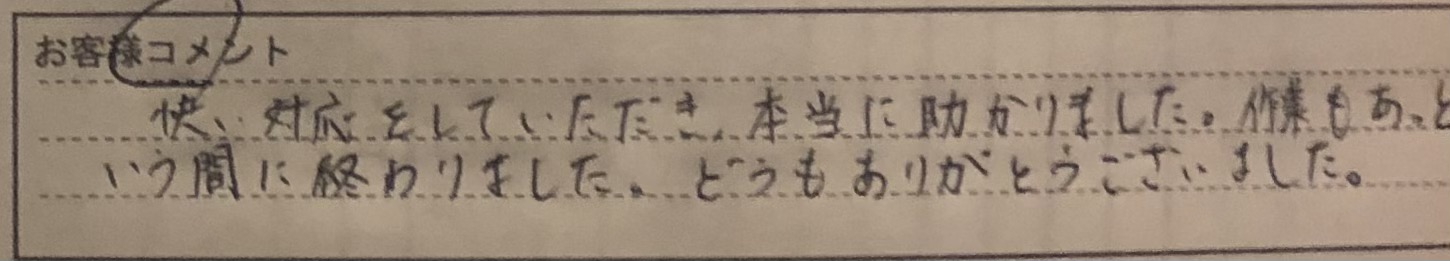 お客様コメント
快い対応をしていただき、本当に助かりました。作業もあっと
いう間に終わりました。どうもありがとうございました。